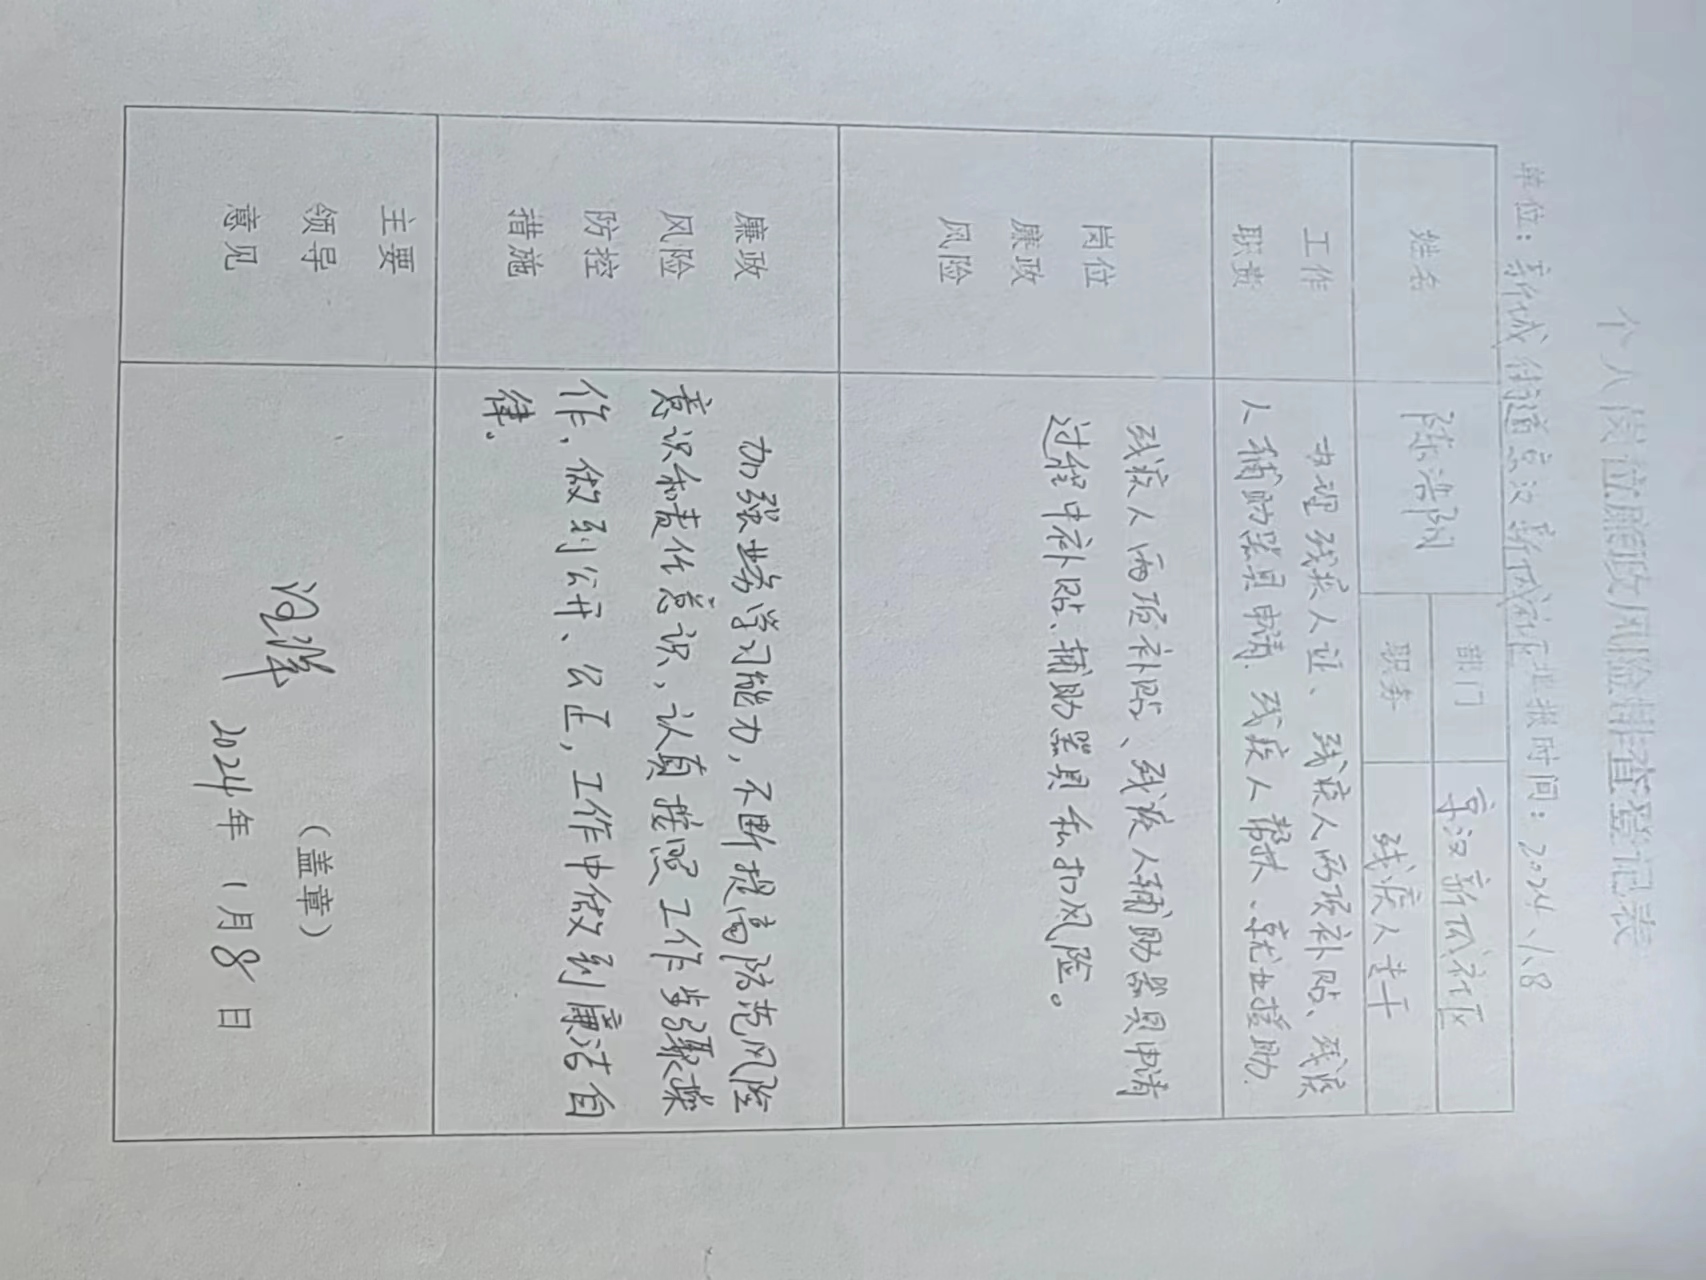 个人岗位廉政风险排查登记表
单位：新城街道京汉新城社区上报时间：2024.1.8
姓名 陈浩 部门 京汉新城社区
职务 残疾人专干
工作职责
办理残疾人证、残疾人两项补贴、残疾
人辅助器具申请、残疾人帮扶、就业援助.
岗位廉政风险
残疾人两项补贴、残疾人辅助器具申请
过程中补贴、辅助器具私扣风险。
廉政风险防控措施
加强业务学习能力，不断提高防范风险
意识和责任意识，认真按照工作步骤操
作，做到公开、公正，工作中做到廉洁自
律。
主要领导意见
（盖章）
2024年1月8日